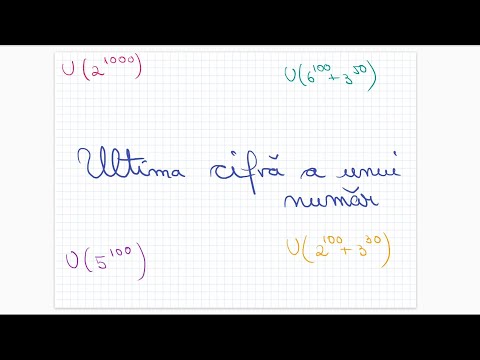 U(2^1000)
U(6^100+3^50)
Ultima cifră a unui
număr
U(5^100)
U(2^100+3^30)